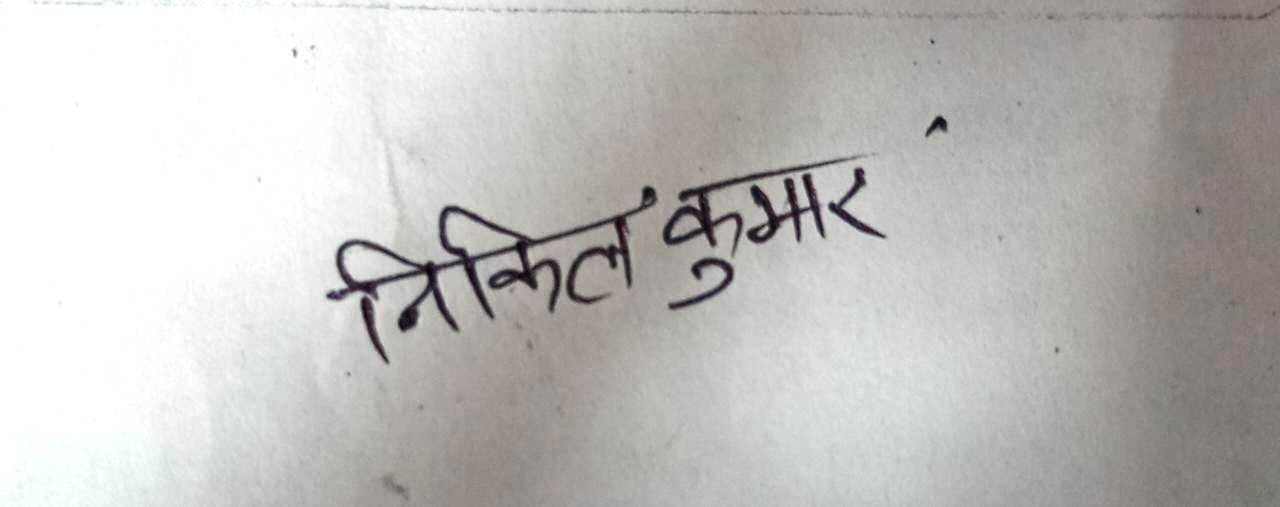 निकिल कुमार